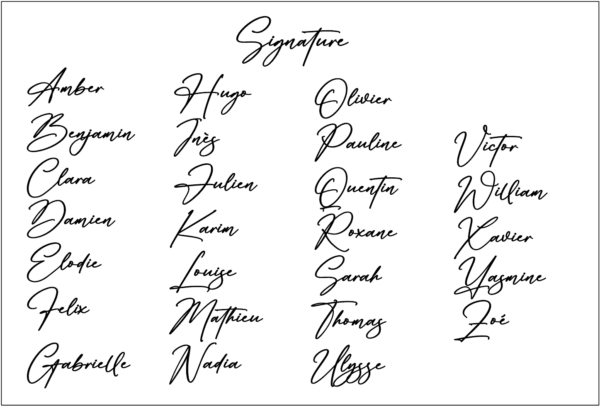 Signature
Amber
Benjamin
Clara
Damien
Elodie
Felix
Gabrielle
Hugo
Inès
Julien
Karim
Louise
Mathieu
Nadia
Olivier
Pauline
Quentin
Roxane
Sarah
Thomas
Ulysse
Victor
William
Xavier
Yasmine
Zoé